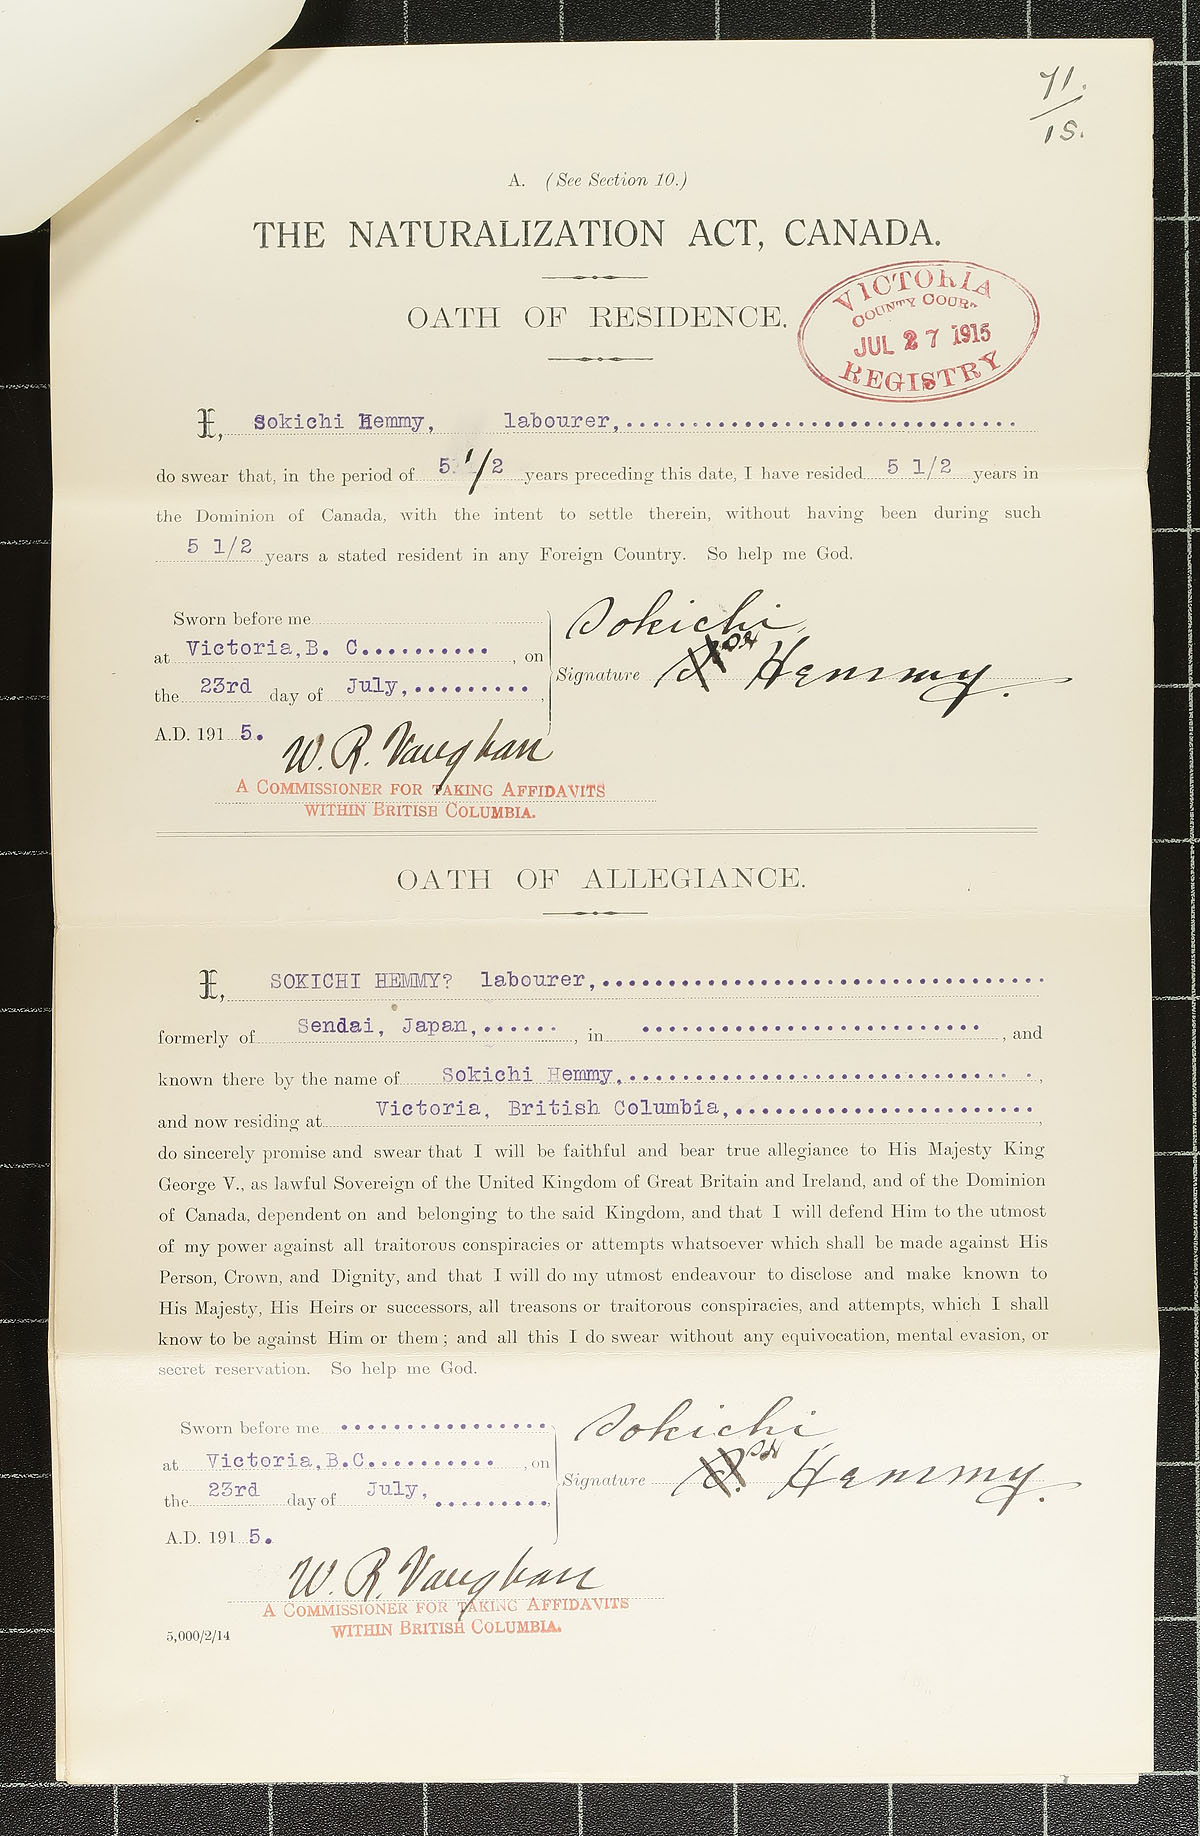 71.
15.
A. (See Section 10.)
THE NATURALIZATION ACT, CANADA.
OATH OF RESIDENCE.
VICTORIA
COUNTY COURT
JUL 27 1915
REGISTRY
I, Sokichi Hemmy, labourer,................................
do swear that, in the period of 5 1/2 years preceding this date, I have resided 5 1/2 years in
the Dominion of Canada, with the intent to settle therein, without having been during such
5 1/2 years a stated resident in any Foreign Country. So help me God.
Sworn before me
at Victoria, B. C.........., on
the 23rd day of July,.........,
A.D. 1915.
Sokichi
Signature Hemmy.
W. R. Vaughan
A COMMISSIONER FOR TAKING AFFIDAVITS
WITHIN BRITISH COLUMBIA.
OATH OF ALLEGIANCE.
I, SOKICHI HEMMY? labourer,..................................
formerly of Sendai, Japan,......, in .........................., and
known there by the name of Sokichi Hemmy,................................,
and now residing at Victoria, British Columbia,.......................,
do sincerely promise and swear that I will be faithful and bear true allegiance to His Majesty King
George V., as lawful Sovereign of the United Kingdom of Great Britain and Ireland, and of the Dominion
of Canada, dependent on and belonging to the said Kingdom, and that I will defend Him to the utmost
of my power against all traitorous conspiracies or attempts whatsoever which shall be made against His
Person, Crown, and Dignity, and that I will do my utmost endeavour to disclose and make known to
His Majesty, His Heirs or successors, all treasons or traitorous conspiracies, and attempts, which I shall
know to be against Him or them; and all this I do swear without any equivocation, mental evasion, or
secret reservation. So help me God.
Sworn before me ................
at Victoria, B.C.........., on
the 23rd day of July, .........,
A.D. 1915.
Sokichi
Signature Hemmy.
W. R. Vaughan
A COMMISSIONER FOR TAKING AFFIDAVITS
WITHIN BRITISH COLUMBIA.
5,000/2/14